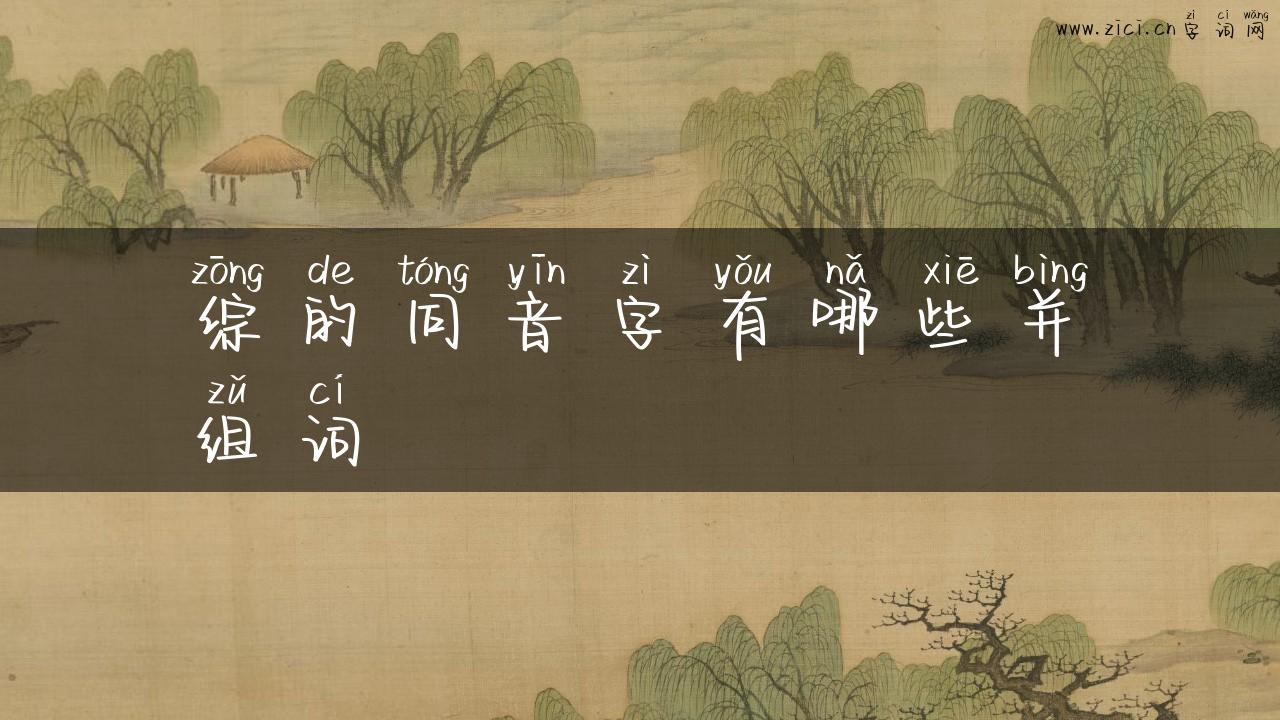 zì cí wǎng
www.zici.cn 字词网
zōng de tóng yīn zì yǒu nǎ xiē bìng
综的同音字有哪些并
zǔ cí
组词